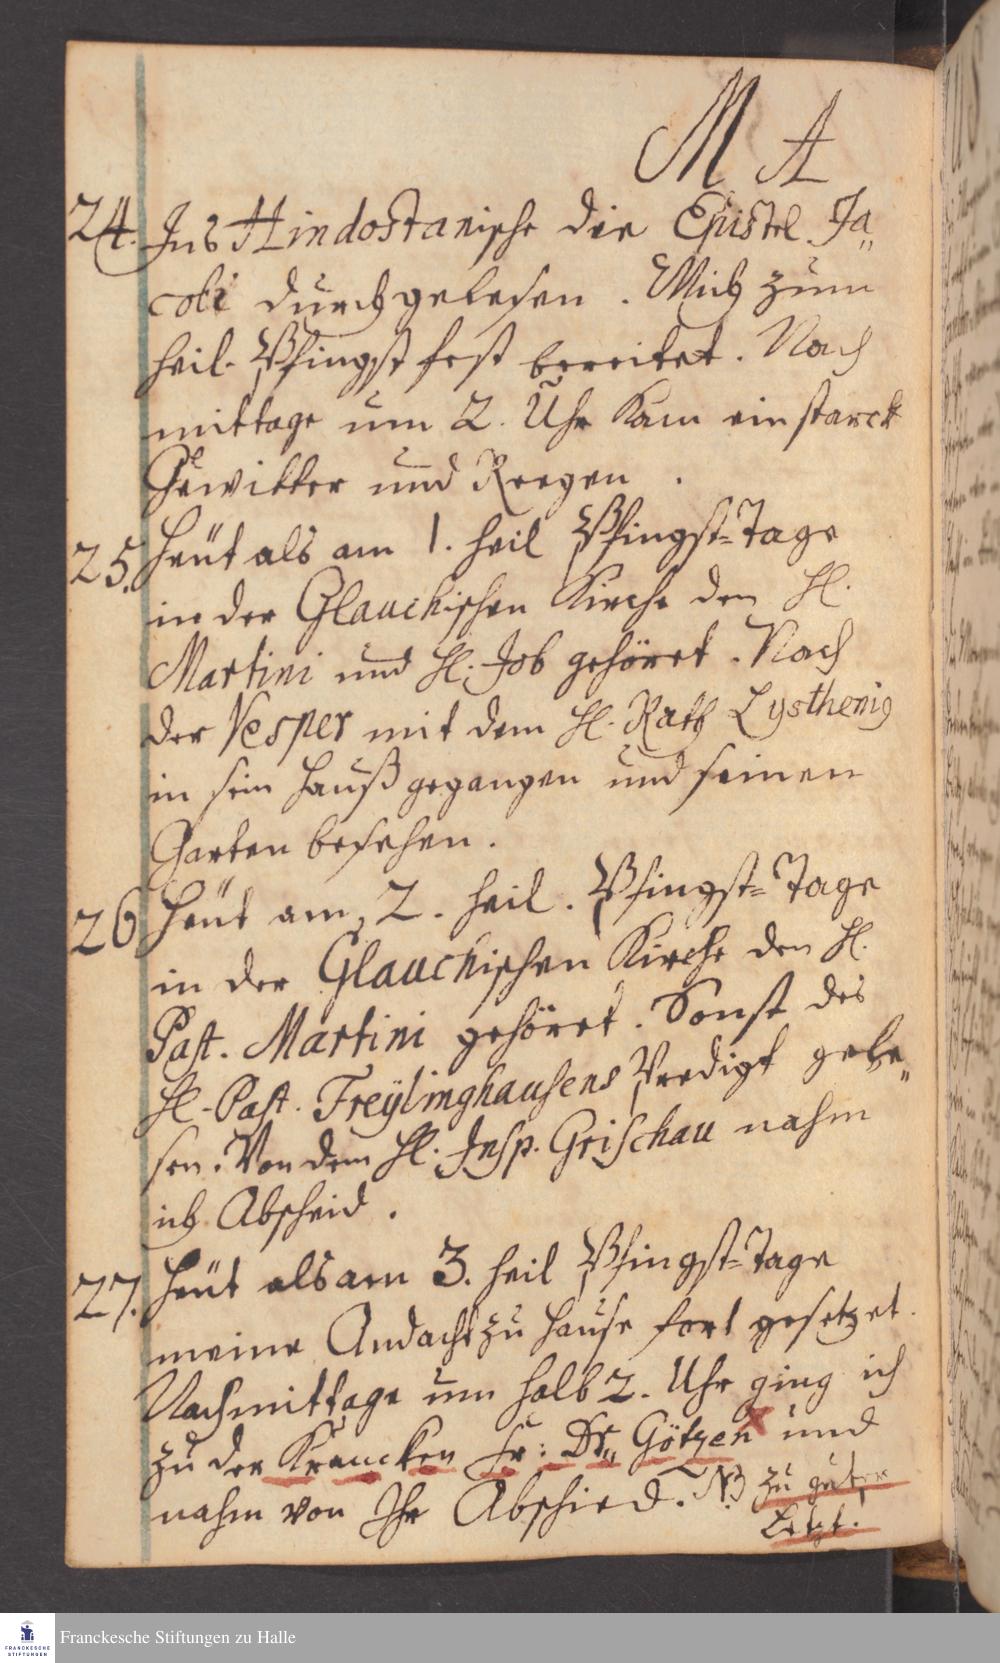 M A
24. Ins Hindostanische die Epistel Ja„
cobi durchgelesen. Mich zum
heil. Pfingst fest bereitet. Nach
mittage um 2. Uhr kam ein starck
Gewitter und Reegen.
25. Heüt als am 1. heil Pfingst=Tage
in der Glauchischen Kirche den H.
Martini und H. Job gehöret. Nach
der Vesper mit dem H. Rath Lysthenig
in sein Hauß gegangen und seinen
Garten besehen.
26 Heüt am 2. heil. Pfingst=Tage
in der Glauchischen Kirche den H.
Past. Martini gehöret. Sonst des
H. Past. Freÿlinghausens Predigt gele„
sen. Von dem H. Insp. Grischau nahm
ich Abscheid.
27. Heüt als am 3. heil Pfingst=Tage
meine Andacht zu Hause fort gesetzet.
Nachmittage um halb 2. Uhr ging ich
zu der Krancken Fr: Dr„ Götzen und
nahm von Ihr Abschied. NB zu guter
Letzt.
FRANCKESCHE
STIFTUNGEN
Franckesche Stiftungen zu Halle